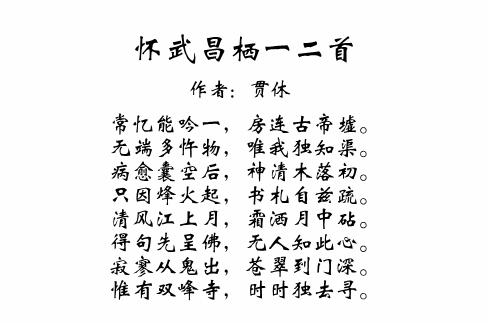 怀武昌栖一二首
作者：贯休
常忆能吟一，房连古帝墟。
无端多忤物，唯我独知渠。
病愈囊空后，神清木落初。
只因烽火起，书札自兹疏。
清风江上月，霜洒月中砧。
得句先呈佛，无人知此心。
寂寥从鬼出，苍翠到门深。
惟有双峰寺，时时独去寻。